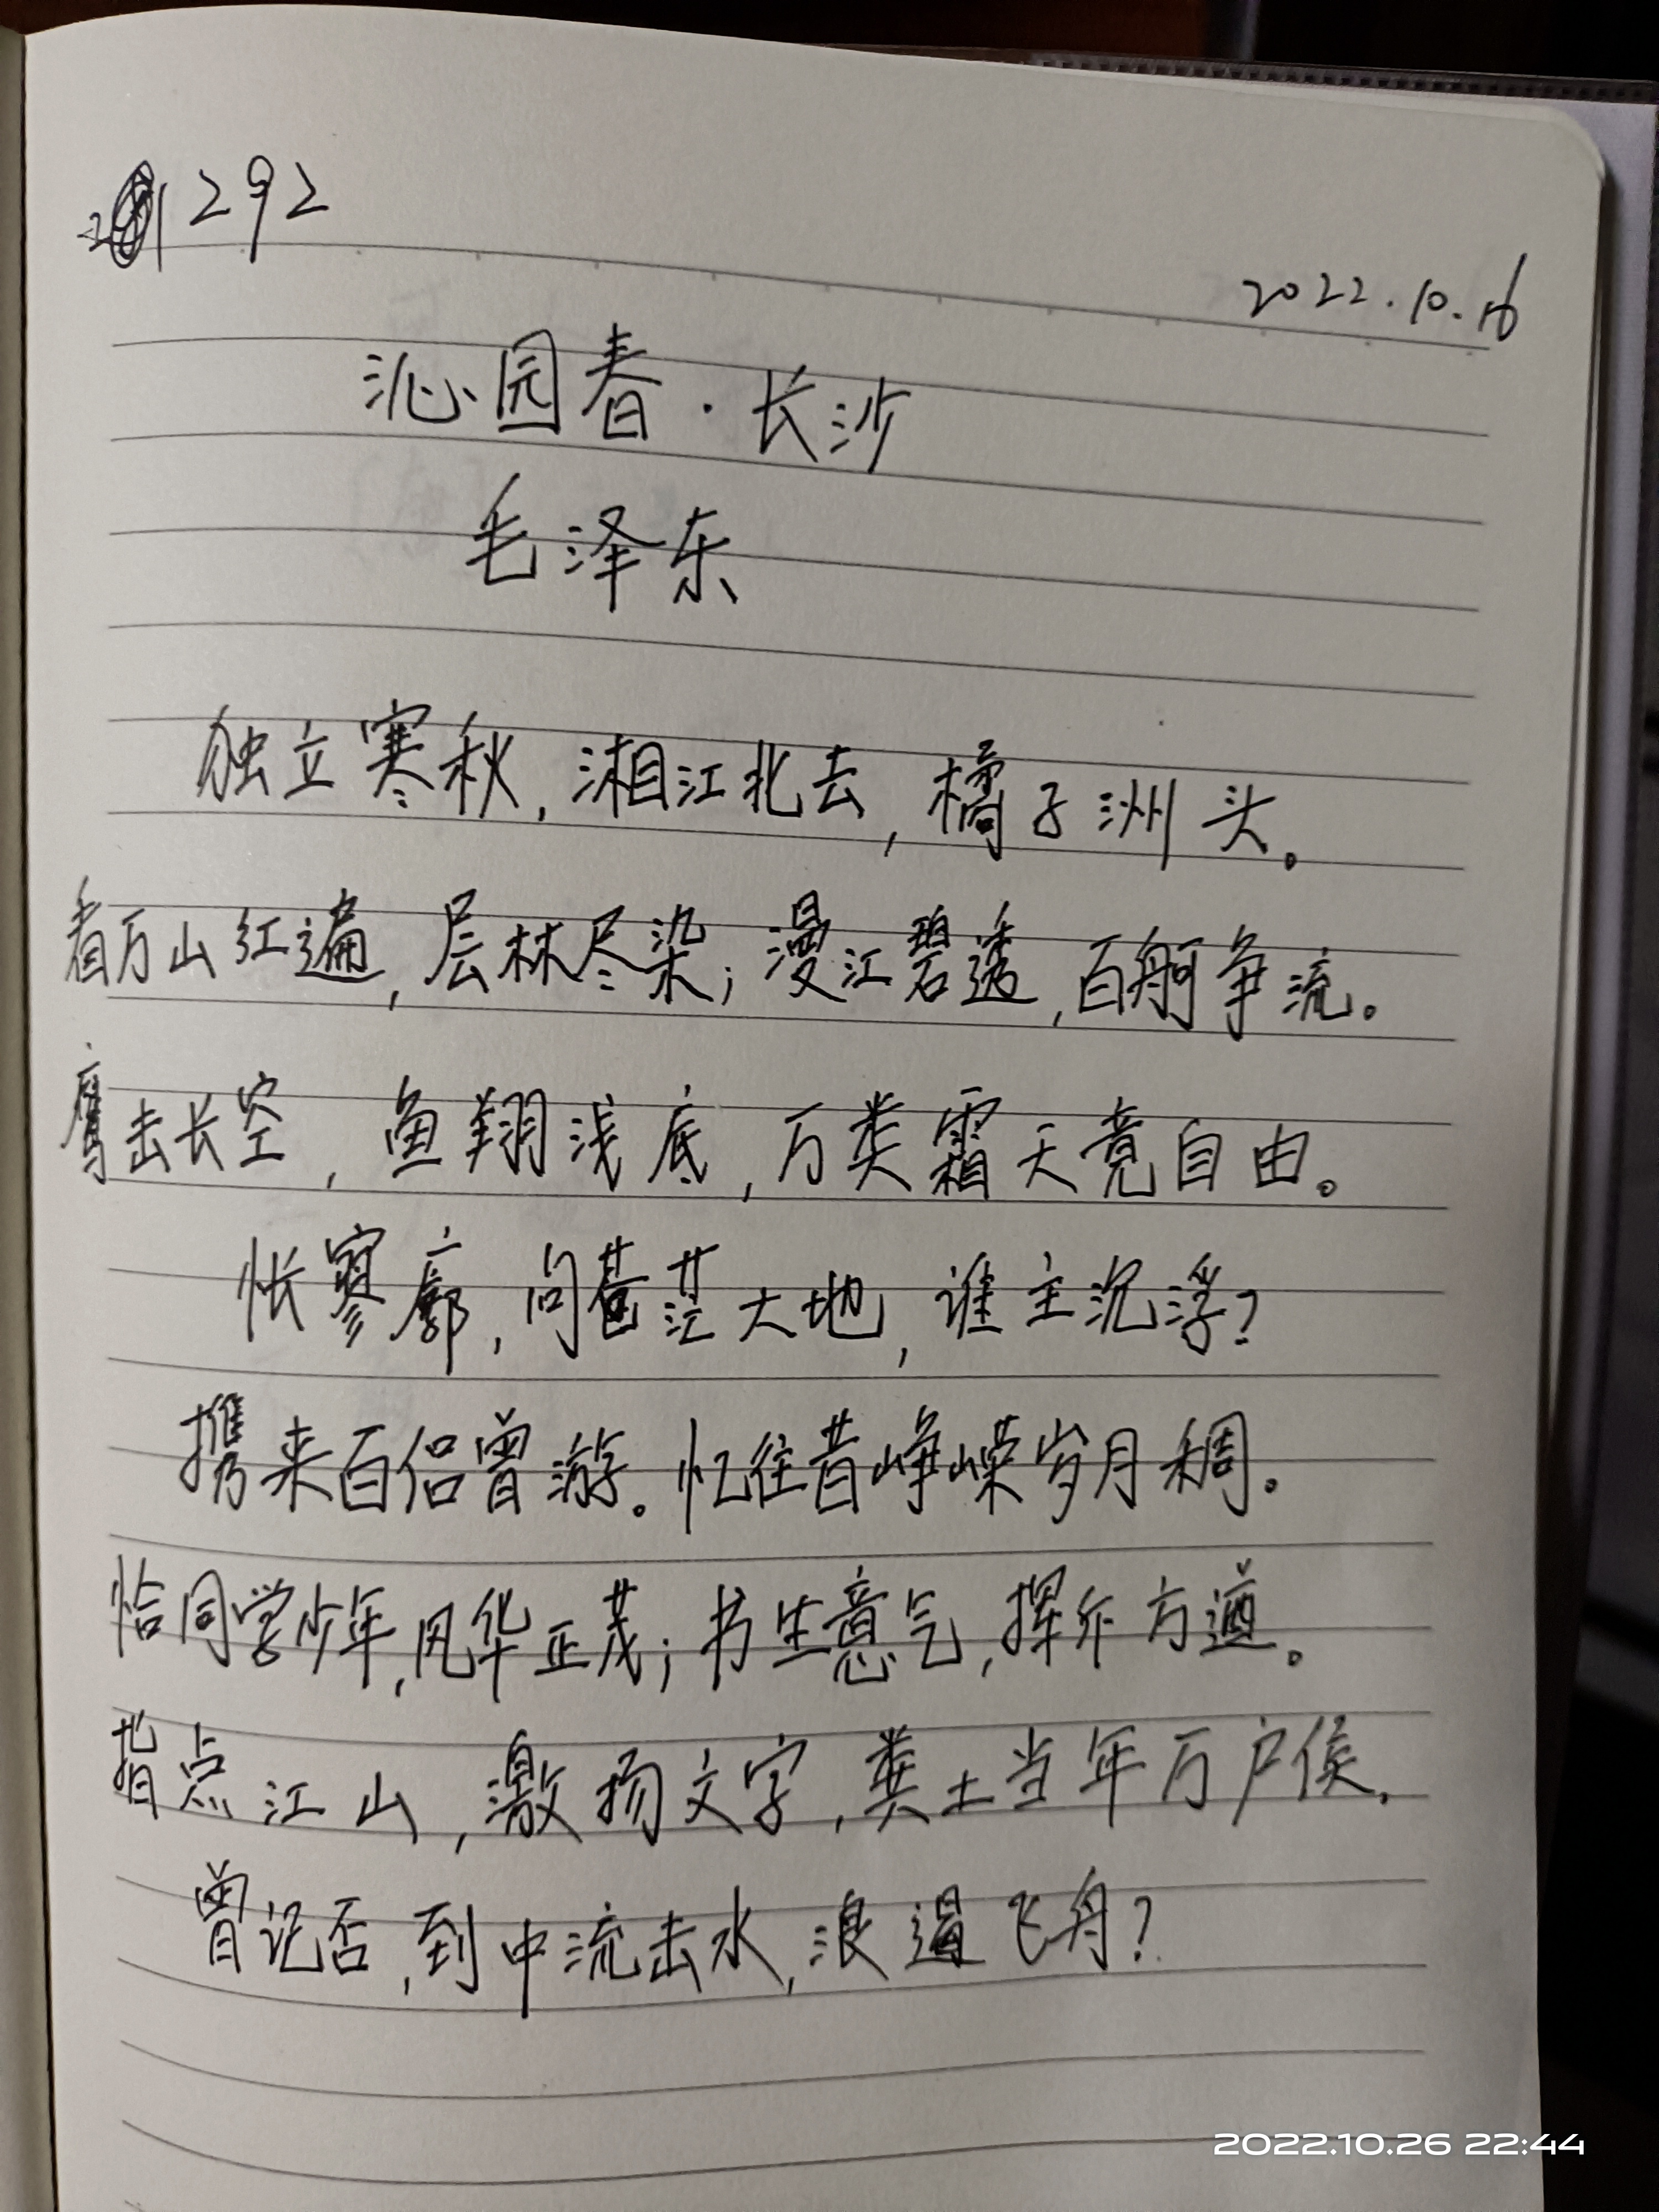 292
2022.10.16
沁园春·长沙
毛泽东
独立寒秋,湘江北去,橘子洲头。
看万山红遍,层林尽染;漫江碧透,百舸争流。
鹰击长空,鱼翔浅底,万类霜天竞自由。
怅寥廓,问苍茫大地,谁主沉浮?
携来百侣曾游。忆往昔峥嵘岁月稠。
恰同学少年,风华正茂;书生意气,挥斥方遒。
指点江山,激扬文字,粪土当年万户侯.
曾记否,到中流击水,浪遏飞舟?
2022.10.26 22:44